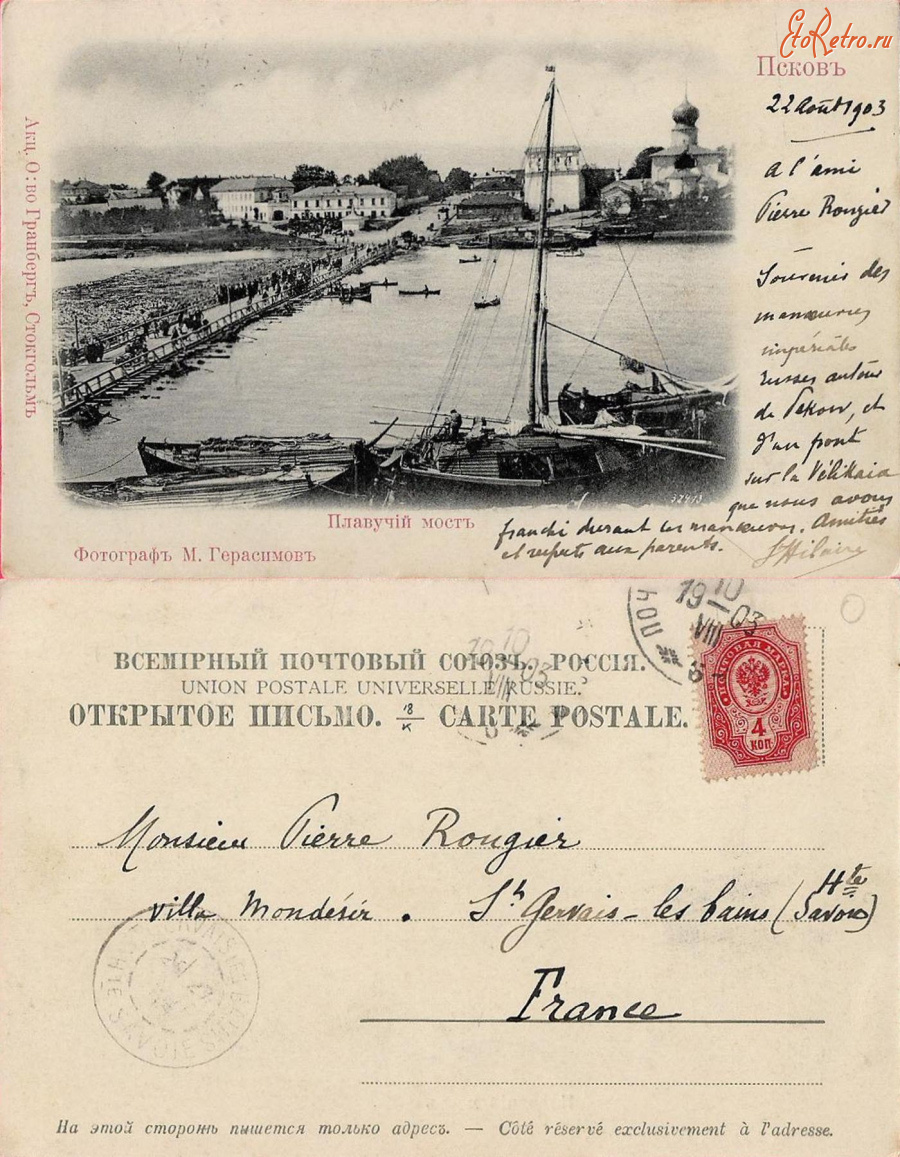 EtoRetro.ru
Псковъ
22 Août 1903
A l'ami
Pierre Rougier
Souvenir des
manœuvres
impériales
russes autour
de Pskow, et
d'un pont
sur la Vélikaia
que nous avons
franchi durant les manœuvres. Amitiés
et respects aux parents.
St Hilaire
Акц. О:во Гранбергъ, Стокгольмъ
37413
Плавучій мостъ
Фотографъ М. Герасимовъ
ВСЕМІРНЫЙ ПОЧТОВЫЙ СОЮЗЪ. РОССІЯ.
UNION POSTALE UNIVERSELLE RUSSIE.
ОТКРЫТОЕ ПИСЬМО. 18/K CARTE POSTALE.
10
VIII
1903
10
VIII
1903
ПОЧТОВАЯ МАРКА
4
КОП
Monsieur Pierre Rougier
Villa Mondésir. St Gervais-les bains (Hte
Savoie)
France
HTE SAVOIE
На этой сторонѣ пышется только адресъ. — Côté réservé exclusivement à l'adresse.